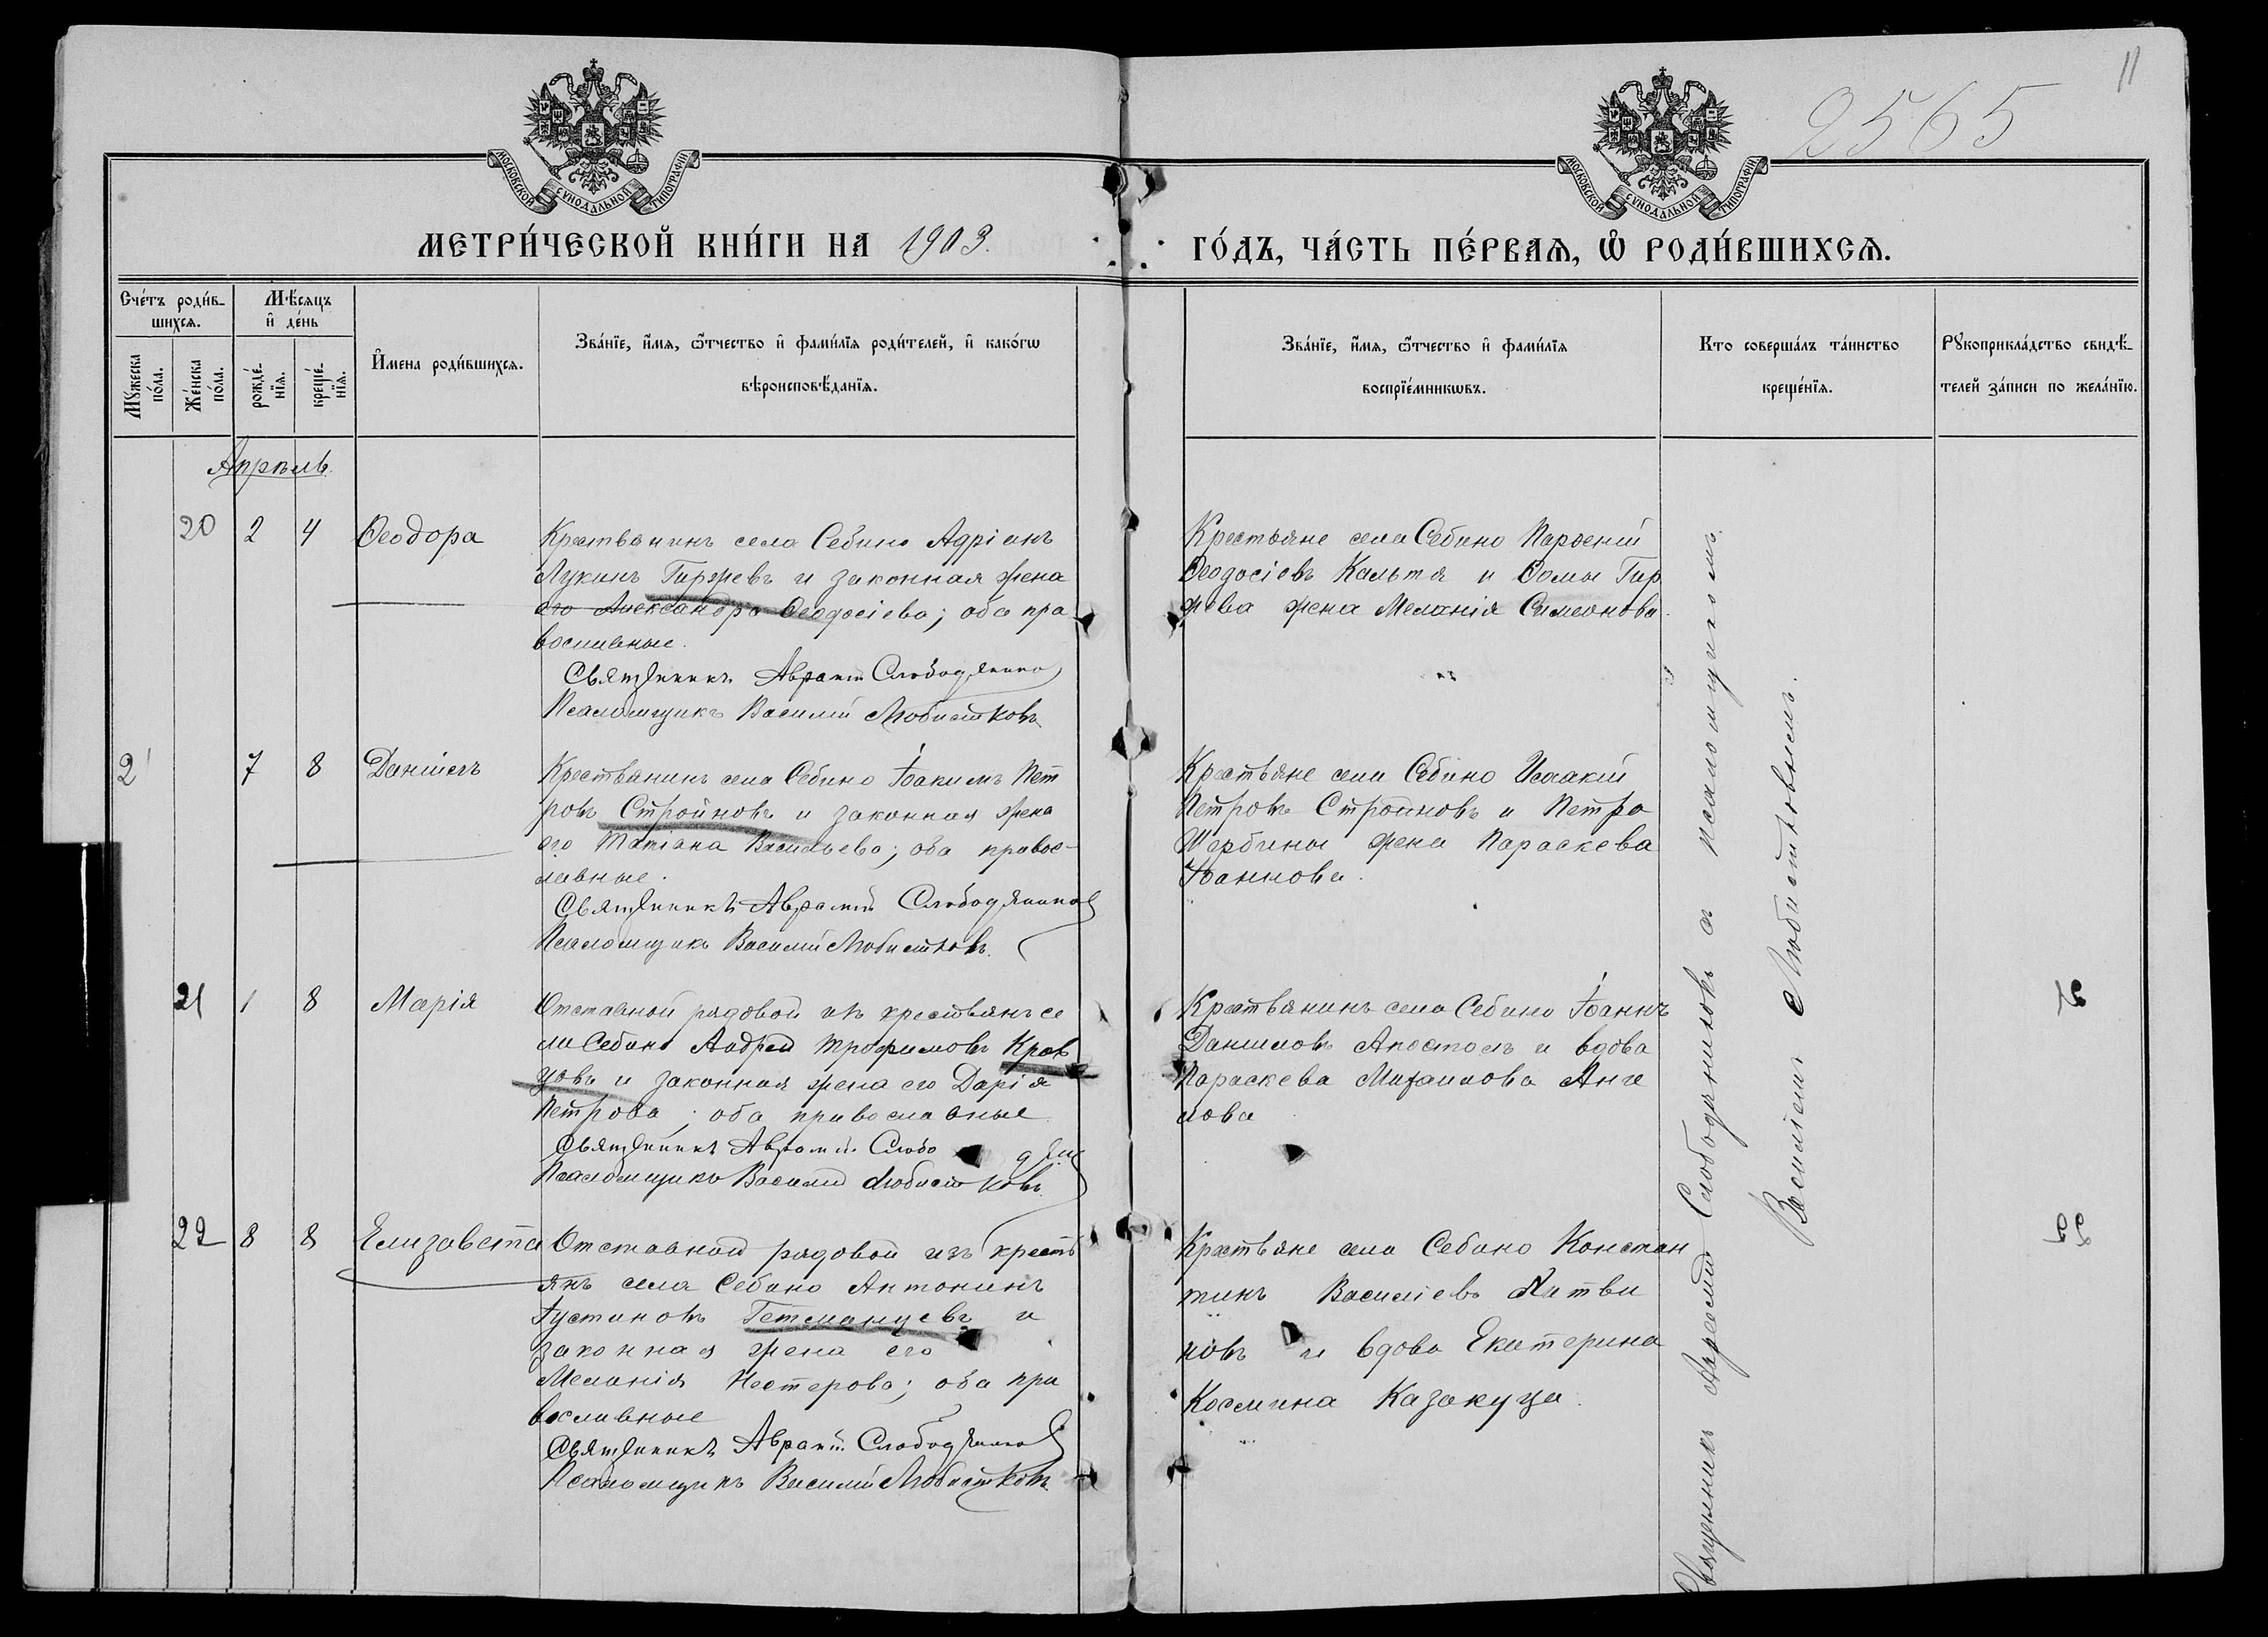 11
2565
МОСКОВСКОЙ СѴНОДАЛЬНОЙ ТИПОГРАФІИ
МОСКОВСКОЙ СѴНОДАЛЬНОЙ ТИПОГРАФІИ
МЕТРИ́ЧЕСКОЙ КНИ́ГИ НА 1903.
ГО́ДЪ, ЧА́СТЬ ПЕ́РВАѦ, Ѡ҆ РОДИ́ВШИХСѦ.
Сче́тъ роди́в-
шихсѧ.
Мꙋ́жеска по́ла.
Же́нска по́ла.
Мѣ́сѧцъ
и҆ де́нь
рожде́-
нїѧ.
креще́-
нїѧ.
И҆мена роди́вшихсѧ.
Зва́нїе, и҆́мѧ, ѻ҆́тчество и҆ фами́лїѧ роди́телей, и҆ како́гѡ
вѣроисповѣ́данїѧ.
Зва́нїе, и҆́мѧ, ѻ҆́тчество и҆ фами́лїѧ
воспрїе́мникѡвъ.
Кто соверша́лъ та́инство
креще́нїѧ.
Рꙋкоприкла́дство свидѣ́-
телей за́писи по жела́нїю.
Апрѣль
20 2 4 Ѳеодора
Крестьянинъ села Себино Адріанъ
Лукинъ Гиржевъ и законная жена
его Александра Ѳеодосіева; оба пра
вославные.
Священникъ Аврамій Слободяников
Псаломщикъ Василій Любистковъ
Крестьяне села Себино Парѳеній
Ѳеодосіевъ Кальтя и Ѳомы Гир
жева жена Меланія Симеонова.
2 7 8 Даніилъ
Крестьянинъ села Себино Іоакимъ Пет
ровъ Стройновъ и законная жена
его Татіана Васильева; оба правос-
лавные.
Священникъ Аврамій Слободяников
Псаломщикъ Василій Любистковъ.
Крестьяне села Себино Исаакій
Петровъ Стройновъ и Петра
Щербины жена Параскева
Іоаннова.
21 1 8 Марія
Отставной рядовой изъ крестьянъ се
ла Себино Андрей Трофимовъ Крав
цовъ и законная жена его Дарія
Петрова; оба православные
Священникъ Аврамій Слободян
Псаломщикъ Василій Любистковъ
Крестьянинъ села Себино Іоаннъ
Даниловъ Апостолъ и вдова
Параскева Михаилова Анге
лова
22 8 8 Елизавета
Отставной рядовой изъ кресть
янъ села Себино Антонинъ
Іустиновъ Гетманцевъ и
законная жена его
Меланія Нестерова; оба пра
вославные
Священникъ Аврамій Слободяников
Псаломщикъ Василій Любистковъ
Крестьяне села Себино Констан
тинъ Василіевъ Литви
новъ и вдова Екатерина
Космина Казакуца.
Священникъ Аврамій Слободяниковъ съ псаломщикомъ
Василіемъ Любистковымъ.